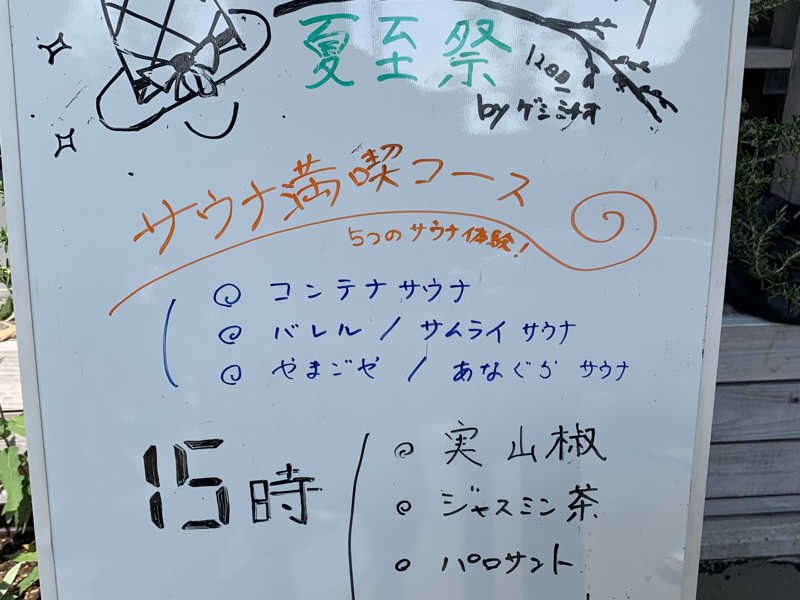 夏至祭
by ゲシミナオ
サウナ満喫コース
5つのサウナ体験!
コンテナサウナ
バレル / サムライ サウナ
やまごや / あなぐら サウナ
15時
実山椒
ジャスミン茶
パロサント